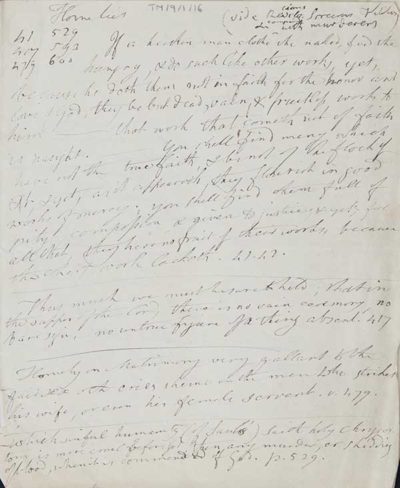 Homelies
TM19/1/16
(vide
41 529
407 593
479 600
If a heathen man clothe the naked, feed the
hungry, & do such like other works, yet,
because he doth them not in faith for the honor and
love of God, they be but dead, vain, & fruitless works to
him that work that cometh not of faith
is naught. You shall find many which
have not the true faith, & be not of the flock
of & yet, as it appeareth, they flourish in good
works of mercy. You shall find them full of
pity, compassion & given to justice, & yet, for
all that, they have no fruit of their works, because
the chief work lacketh. 41.42.
Thus much we must be sure to hold, that in
the supper of the Lord there is no vain ceremony, no
bare sign, no untrue figure of a thing absent. 417
Homily on Matrimony very gallant to the
& cries shame on the man who strikes
his wife, or even her female servant. v. 479.
Which sinful humanity (of Saul) saith holy Chrysos
tom, is more cruel before God than any murder or shedding
of blood, when it is commanded of God. p. 529.